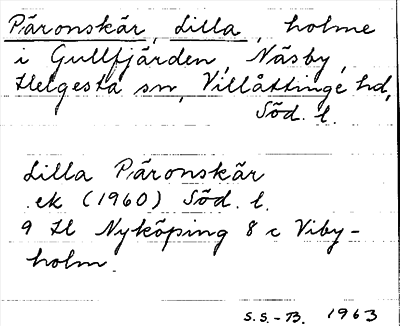 Päronskär, Lilla, holme
i Gullfjärden, Näsby,
Helgesta sn, Villåttinge hd,
Söd. l.
Lilla Päronskär
ek (1960) Söd. l.
9 H Nyköping 8 c Viby-
holm.
S.S.-B. 1963